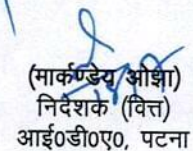 (मार्कण्डेय ओझा)
निदेशक (वित्त)
आई0डी0ए0, पटना